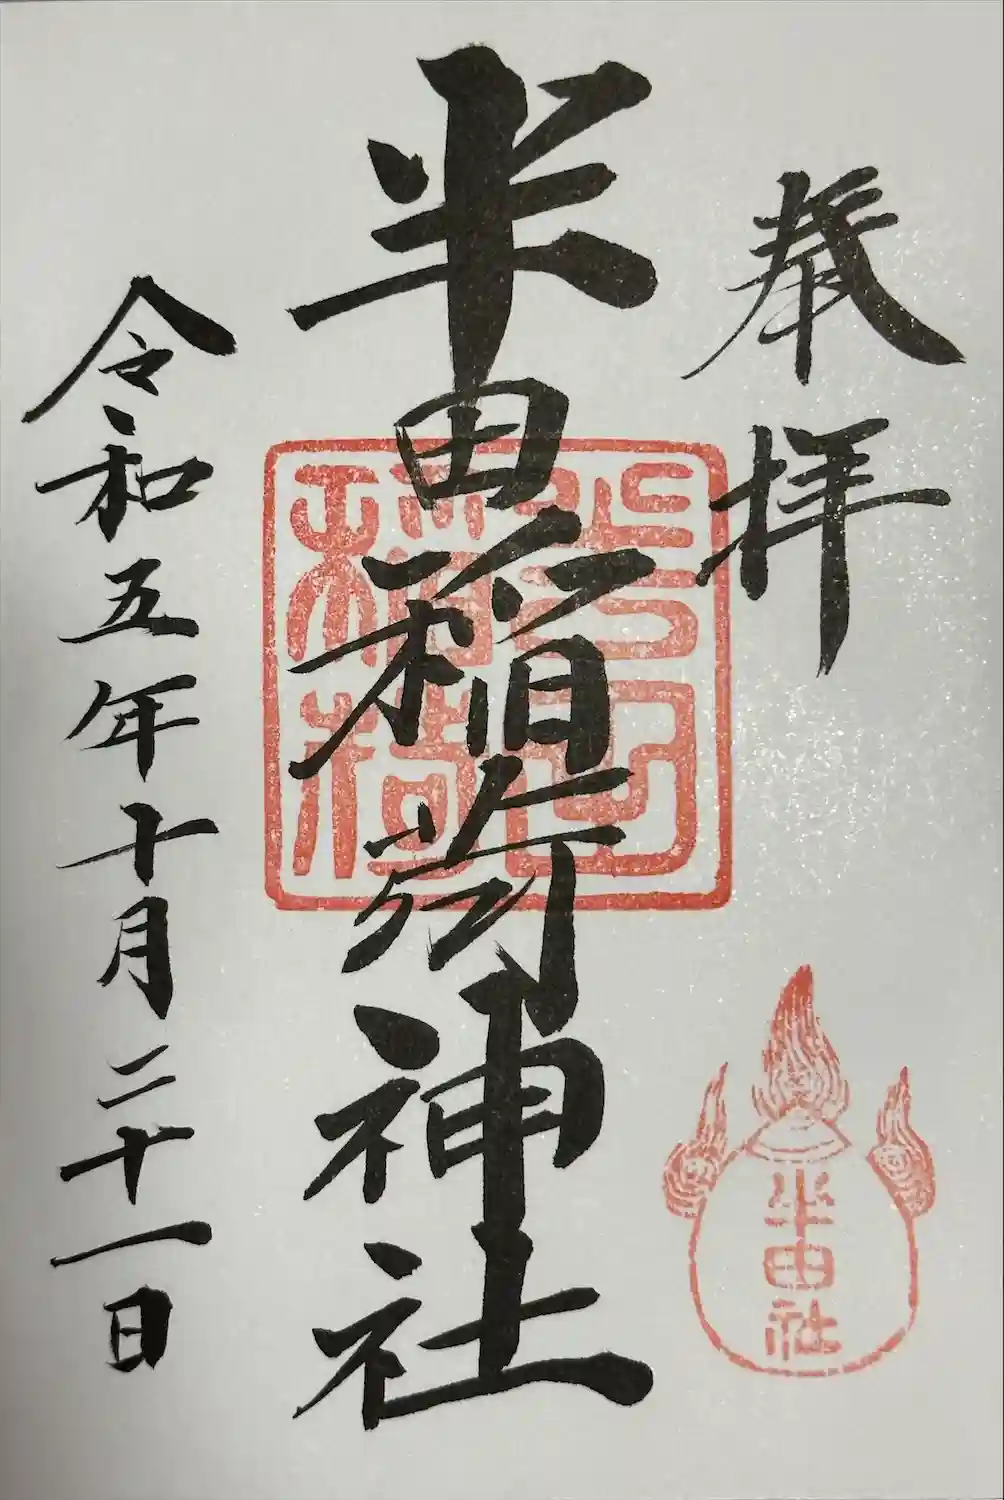 奉拝
半田稲荷神社
半田社
令和五年十月二十一日